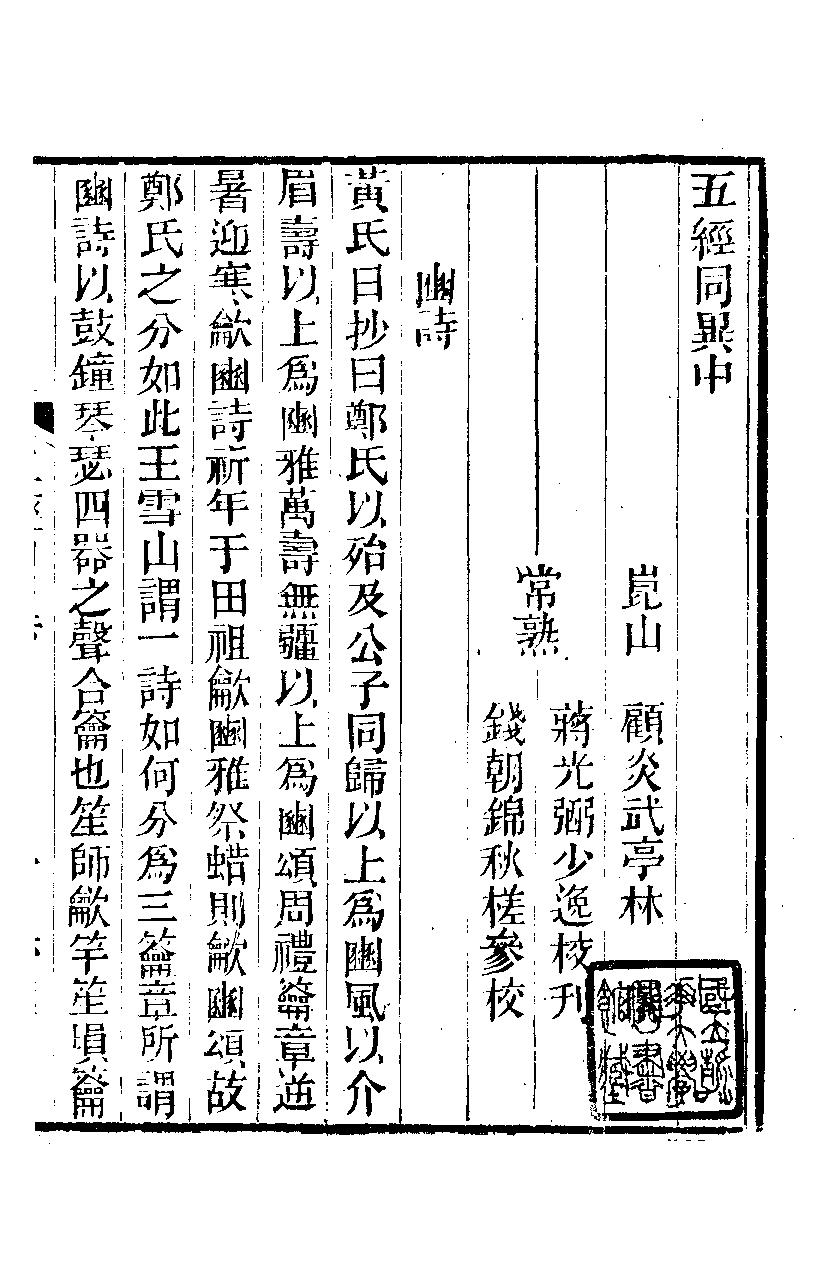 五經同異中
崑山　顧炎武亭林
常熟
蔣光弼少逸校刊
錢朝錦秋槎參校
豳詩
黃氏日抄曰鄭氏以殆及公子同歸以上爲豳風以介
眉壽以上爲豳雅萬壽無疆以上爲豳頌周禮籥章逆
暑迎寒龡豳詩祈年于田祖龡豳雅祭蜡則龡豳頌故
鄭氏之分如此王雪山謂一詩如何分爲三籥章所謂
豳詩以鼓鐘琴瑟四器之聲合籥也笙師龡竽笙塤籥